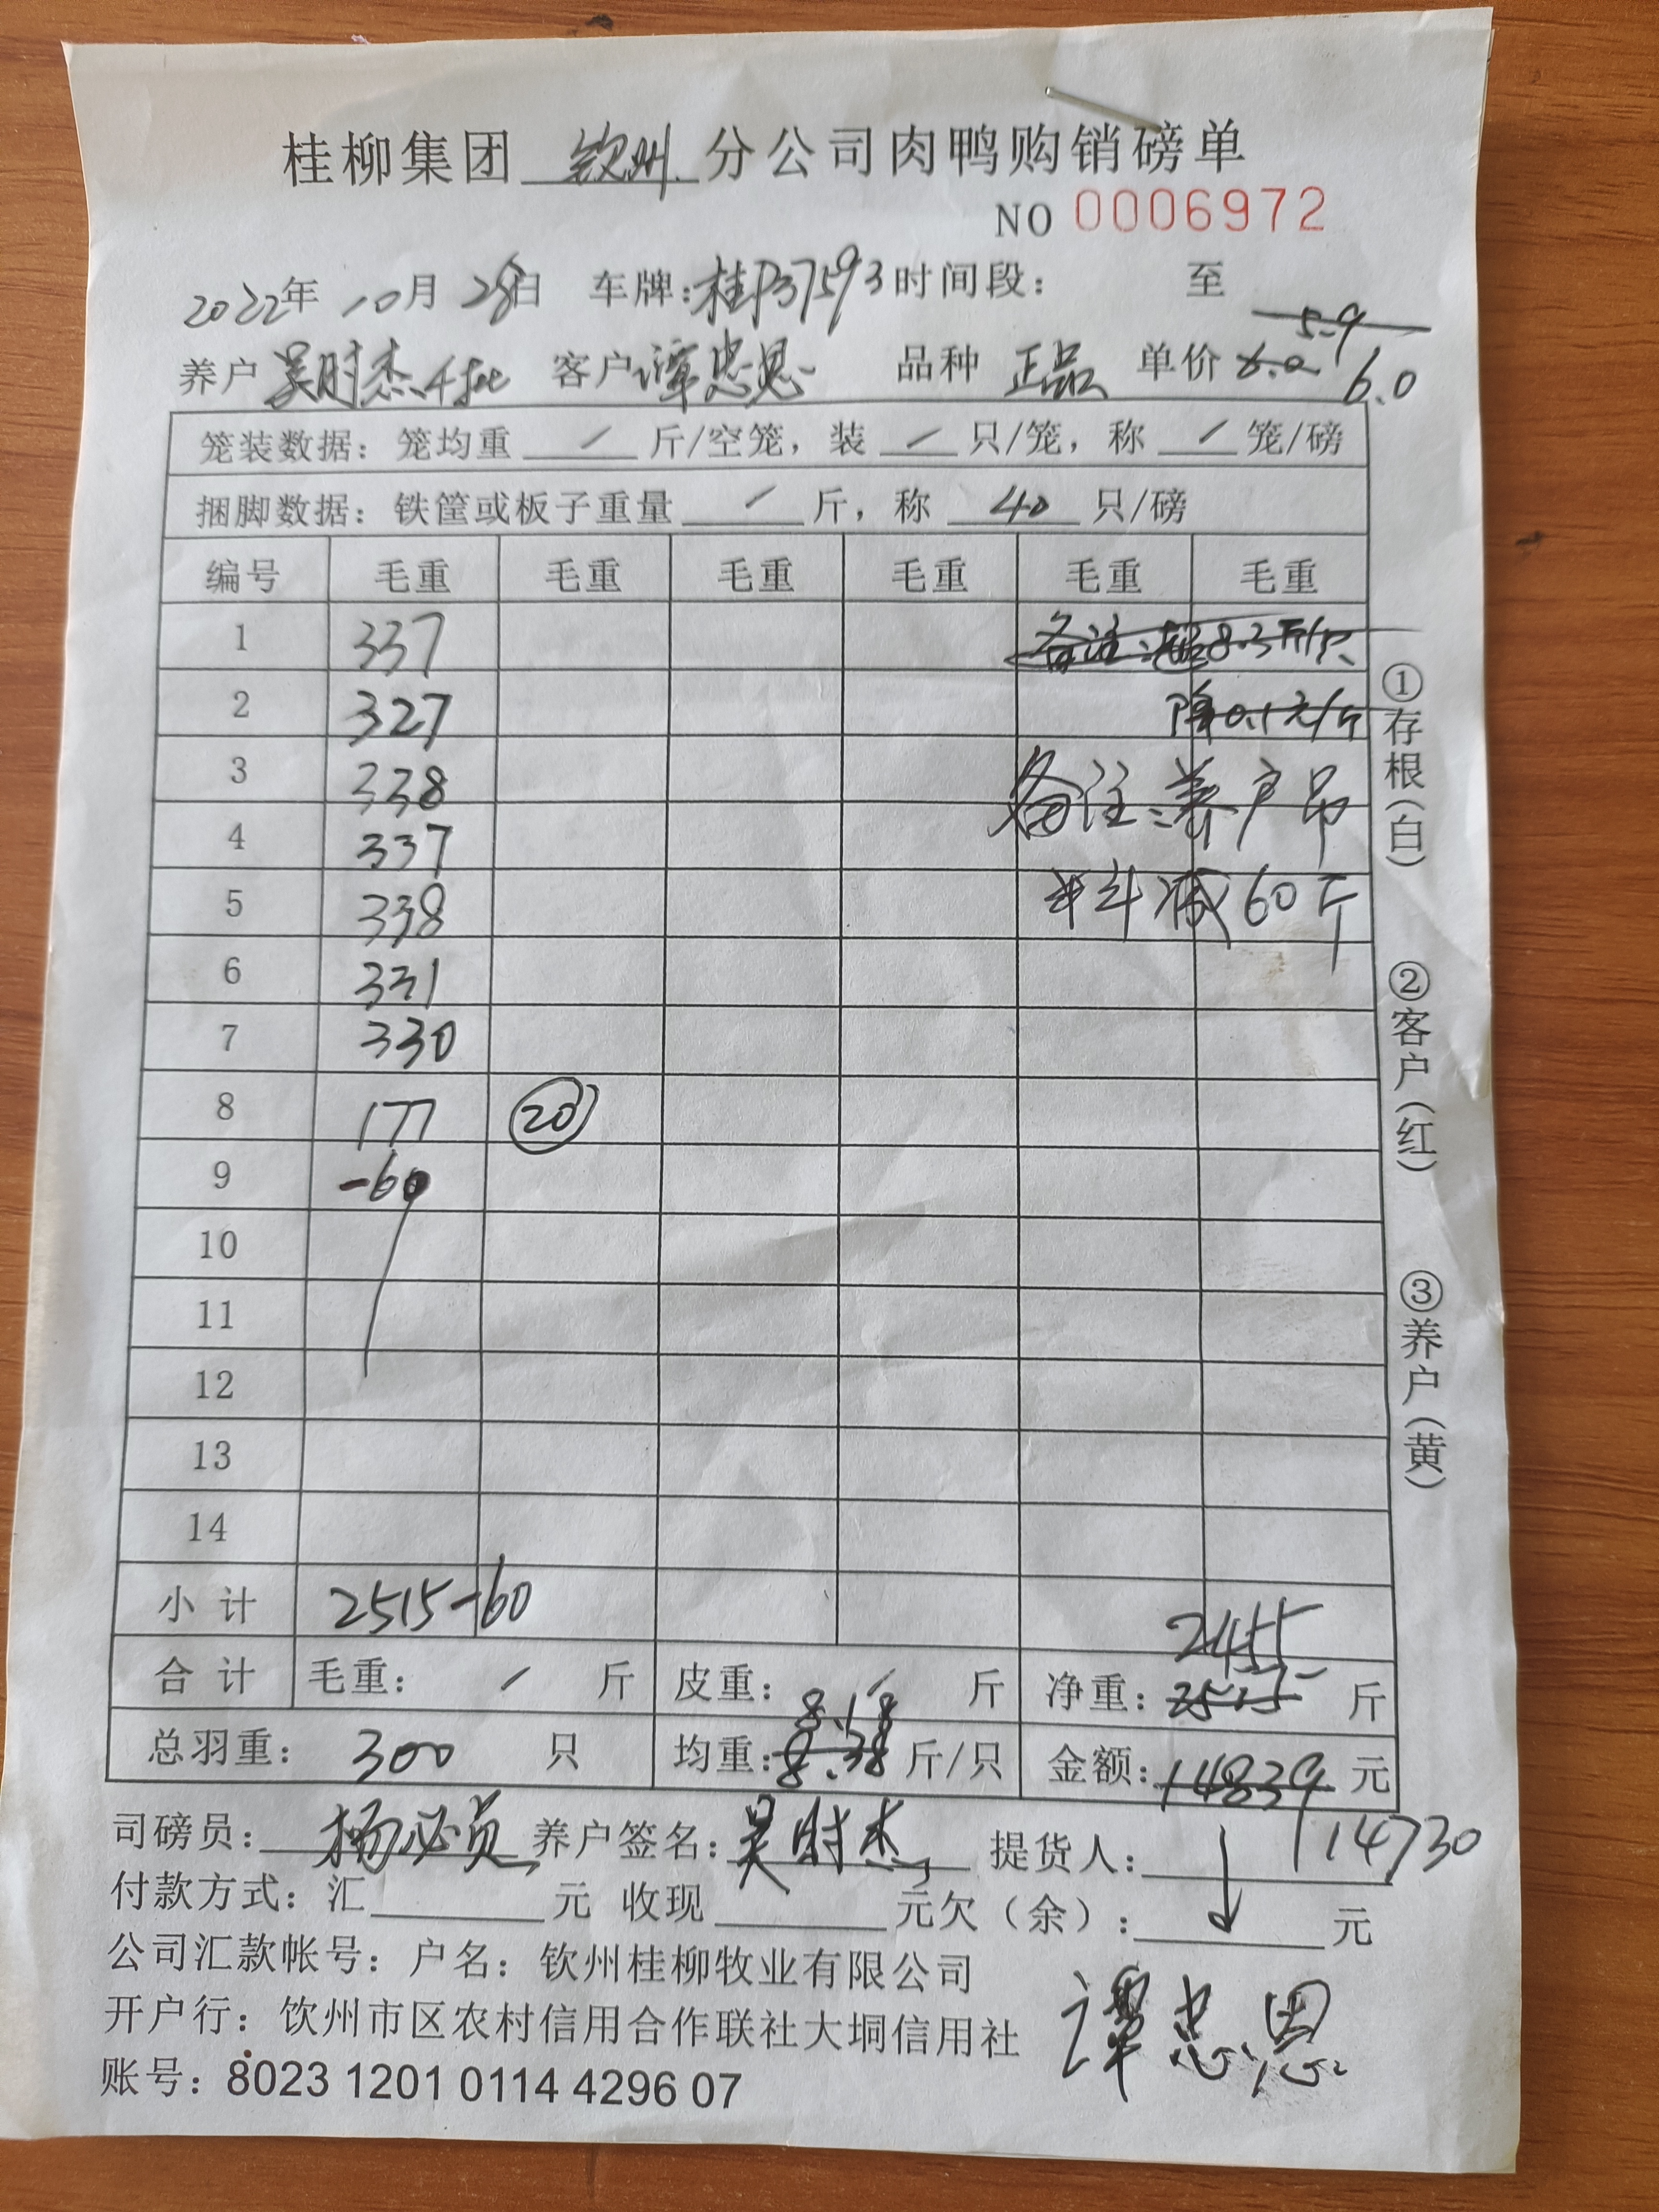 桂柳集团 钦州 分公司肉鸭购销磅单
NO 0006972
2022年 10月 28日 车牌:桂P37593 时间段: 至
5.9
养户 吴时杰4批 客户 谭忠恩 品种 正品 单价 6.0 6.0
笼装数据: 笼均重 / 斤/空笼, 装 / 只/笼, 称 / 笼/磅
捆脚数据: 铁筐或板子重量 / 斤, 称 40 只/磅
编号 毛重 毛重 毛重 毛重 毛重 毛重
1 337 备注:超8.3斤/只
2 327 降0.1元/斤
3 338
备注:养户吊
4 337
5 338 半斗减60斤
6 331
7 330
8 177 20
9 -60
10
11
12
13
14
小计 2515-60
2455
合计 毛重: / 斤 皮重: / 斤 净重: 2515 斤
8.18
总羽重: 300 只 均重: 8.38 斤/只 金额: 14839 元
司磅员: 杨必员 养户签名: 吴时杰 提货人: 14730
付款方式: 汇 元 收现 元欠(余): 元
公司汇款帐号: 户名: 钦州桂柳牧业有限公司
开户行: 钦州市区农村信用合作联社大垌信用社
谭忠恩
账号: 8023 1201 0114 4296 07
①存根(白)
②客户(红)
③养户(黄)